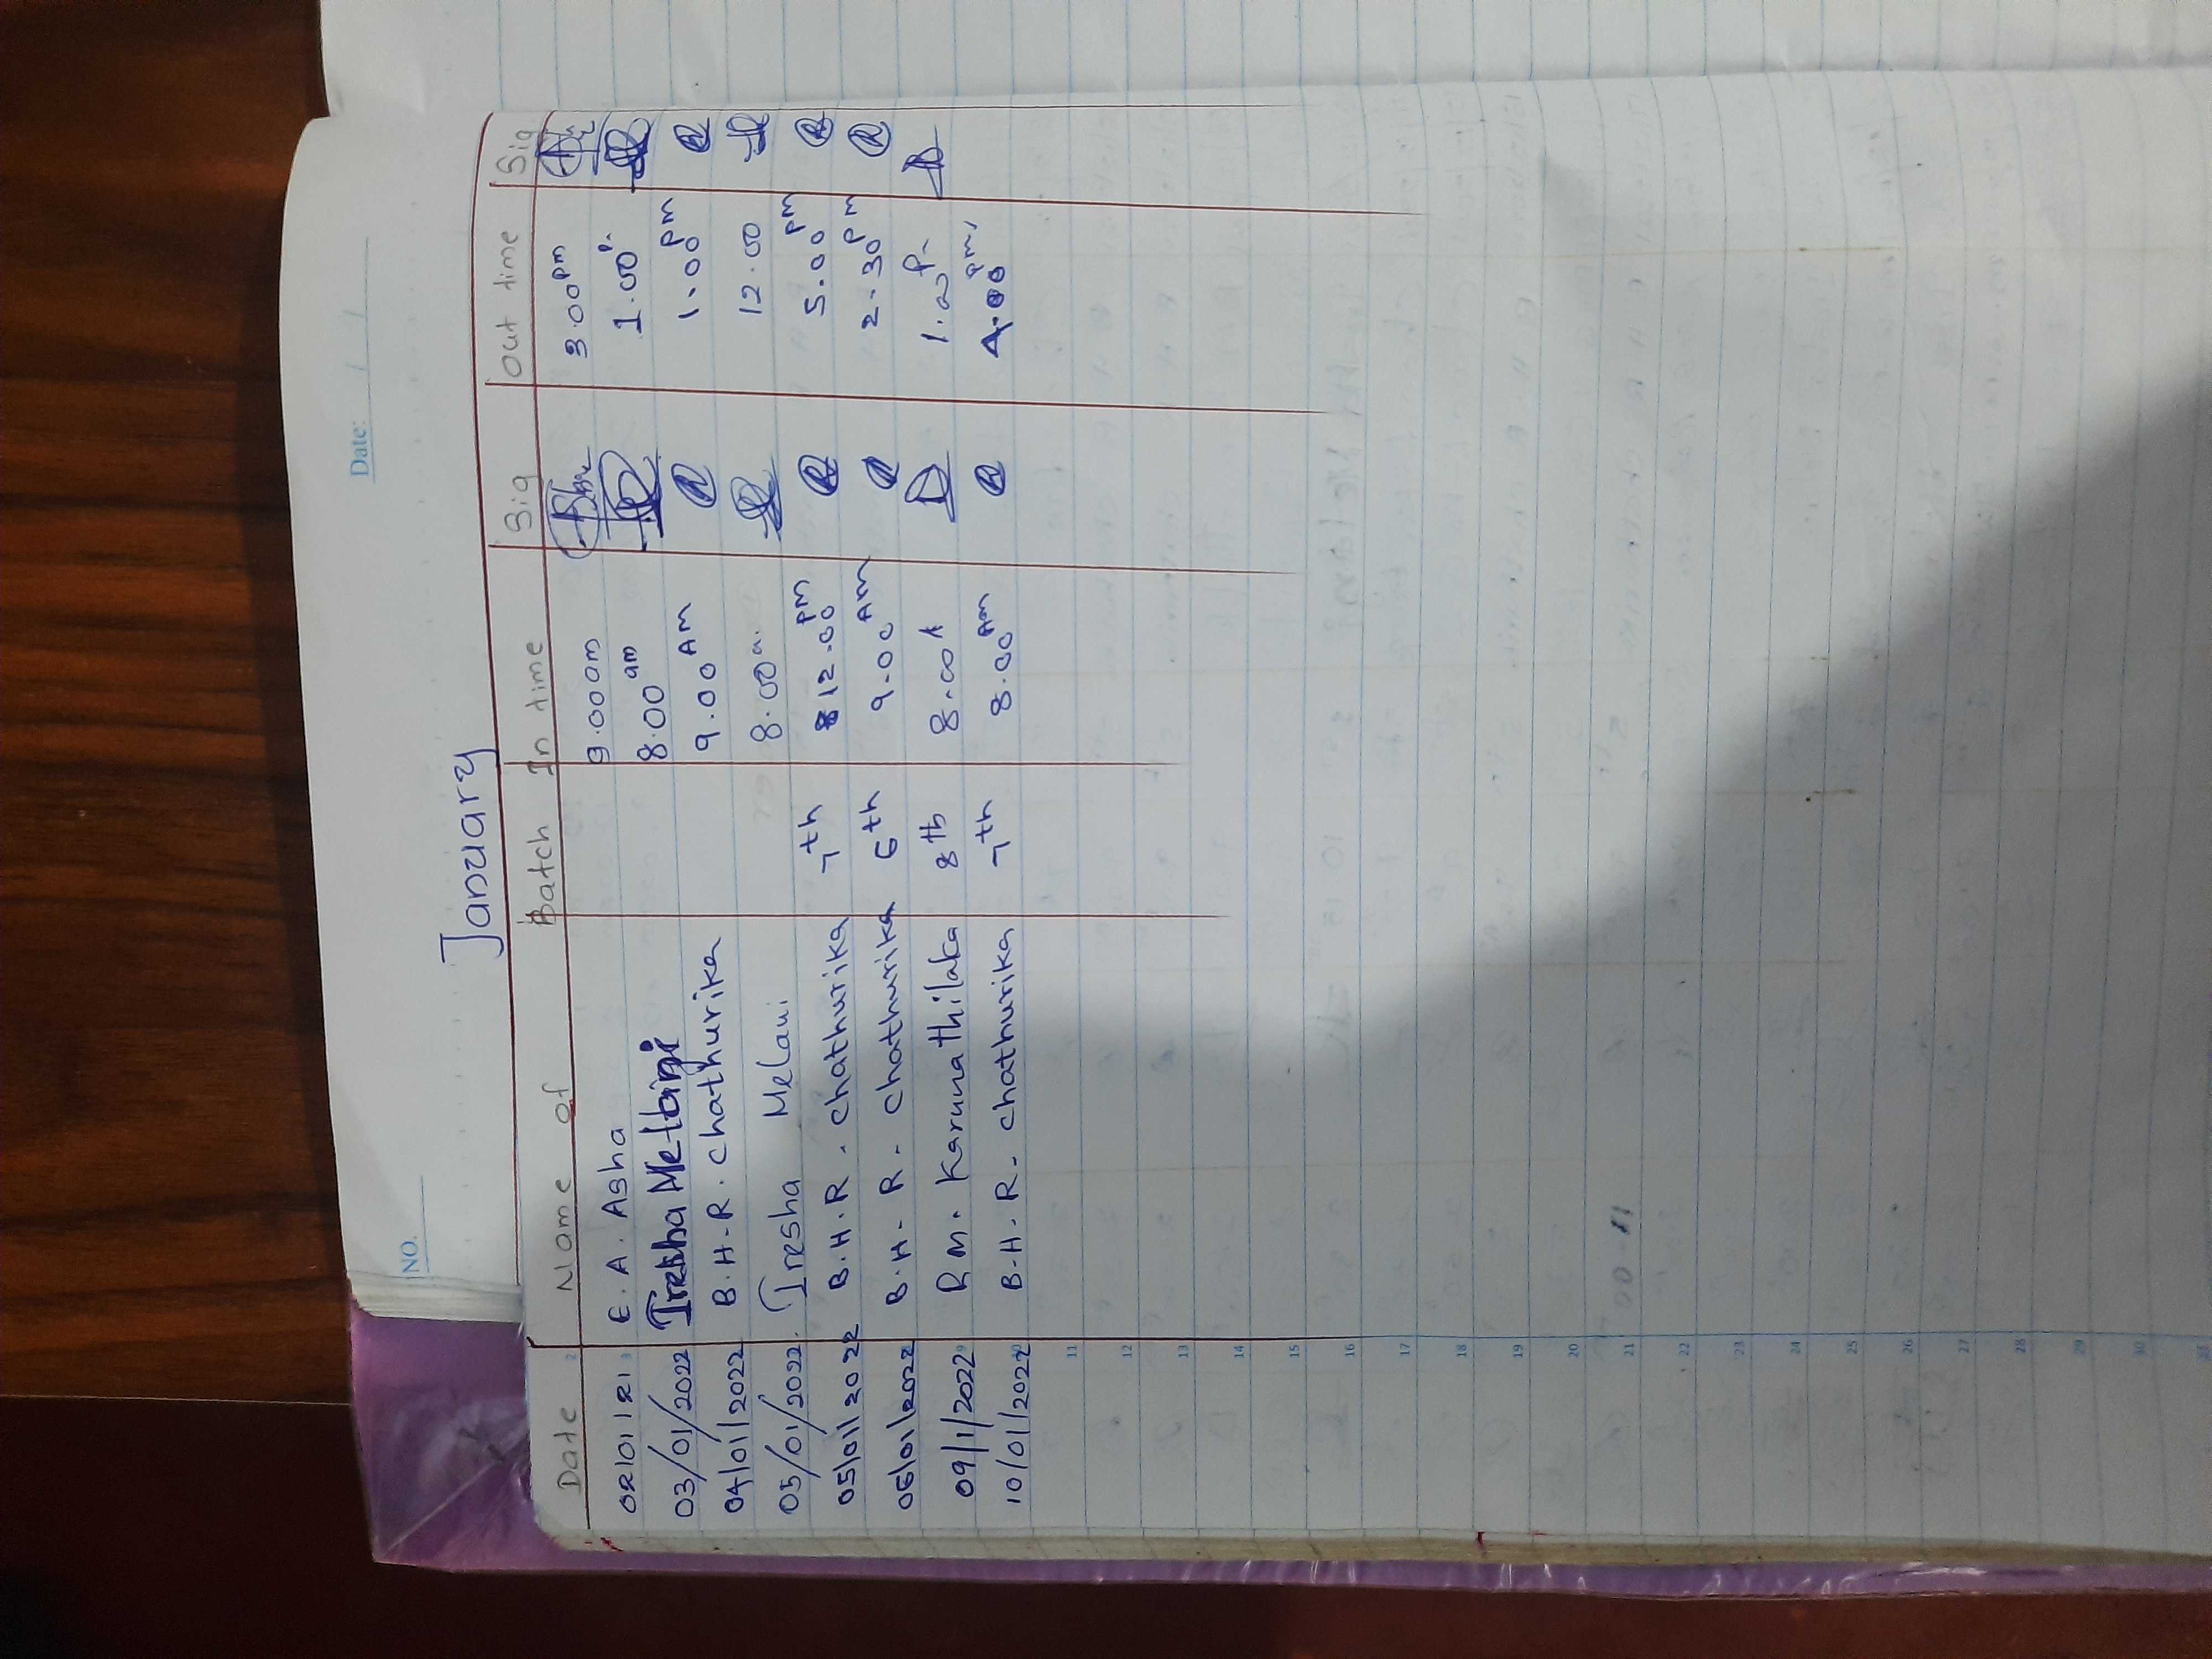 NO.
Date: / /
January
Date Name of Batch In time Sig Out time Sig
02/01/21 E. A. Asha 9.00am 3.00pm
03/01/2022 Iresha Melani 8.00am 1.00p.
04/01/2022 B.H.R. Chathurika 9.00AM 1.00pm
05/01/2022. Iresha Melani 8.00a. 12.00
05/01/2022 B.H.R. Chathurika 7th 12.00pm 5.00pm
06/01/2022 B.H.R. Chathurika 6th 9.00AM 2.30pm
09/1/2022 R.M. Karunathilaka 8th 8.00A 1.00P
10/01/2022 B.H.R. Chathurika 7th 8.00AM 4.00pm
2
3
9
10
11
12
13
14
15
16
17
18
19
20
21
22
23
24
25
26
27
28
29
30